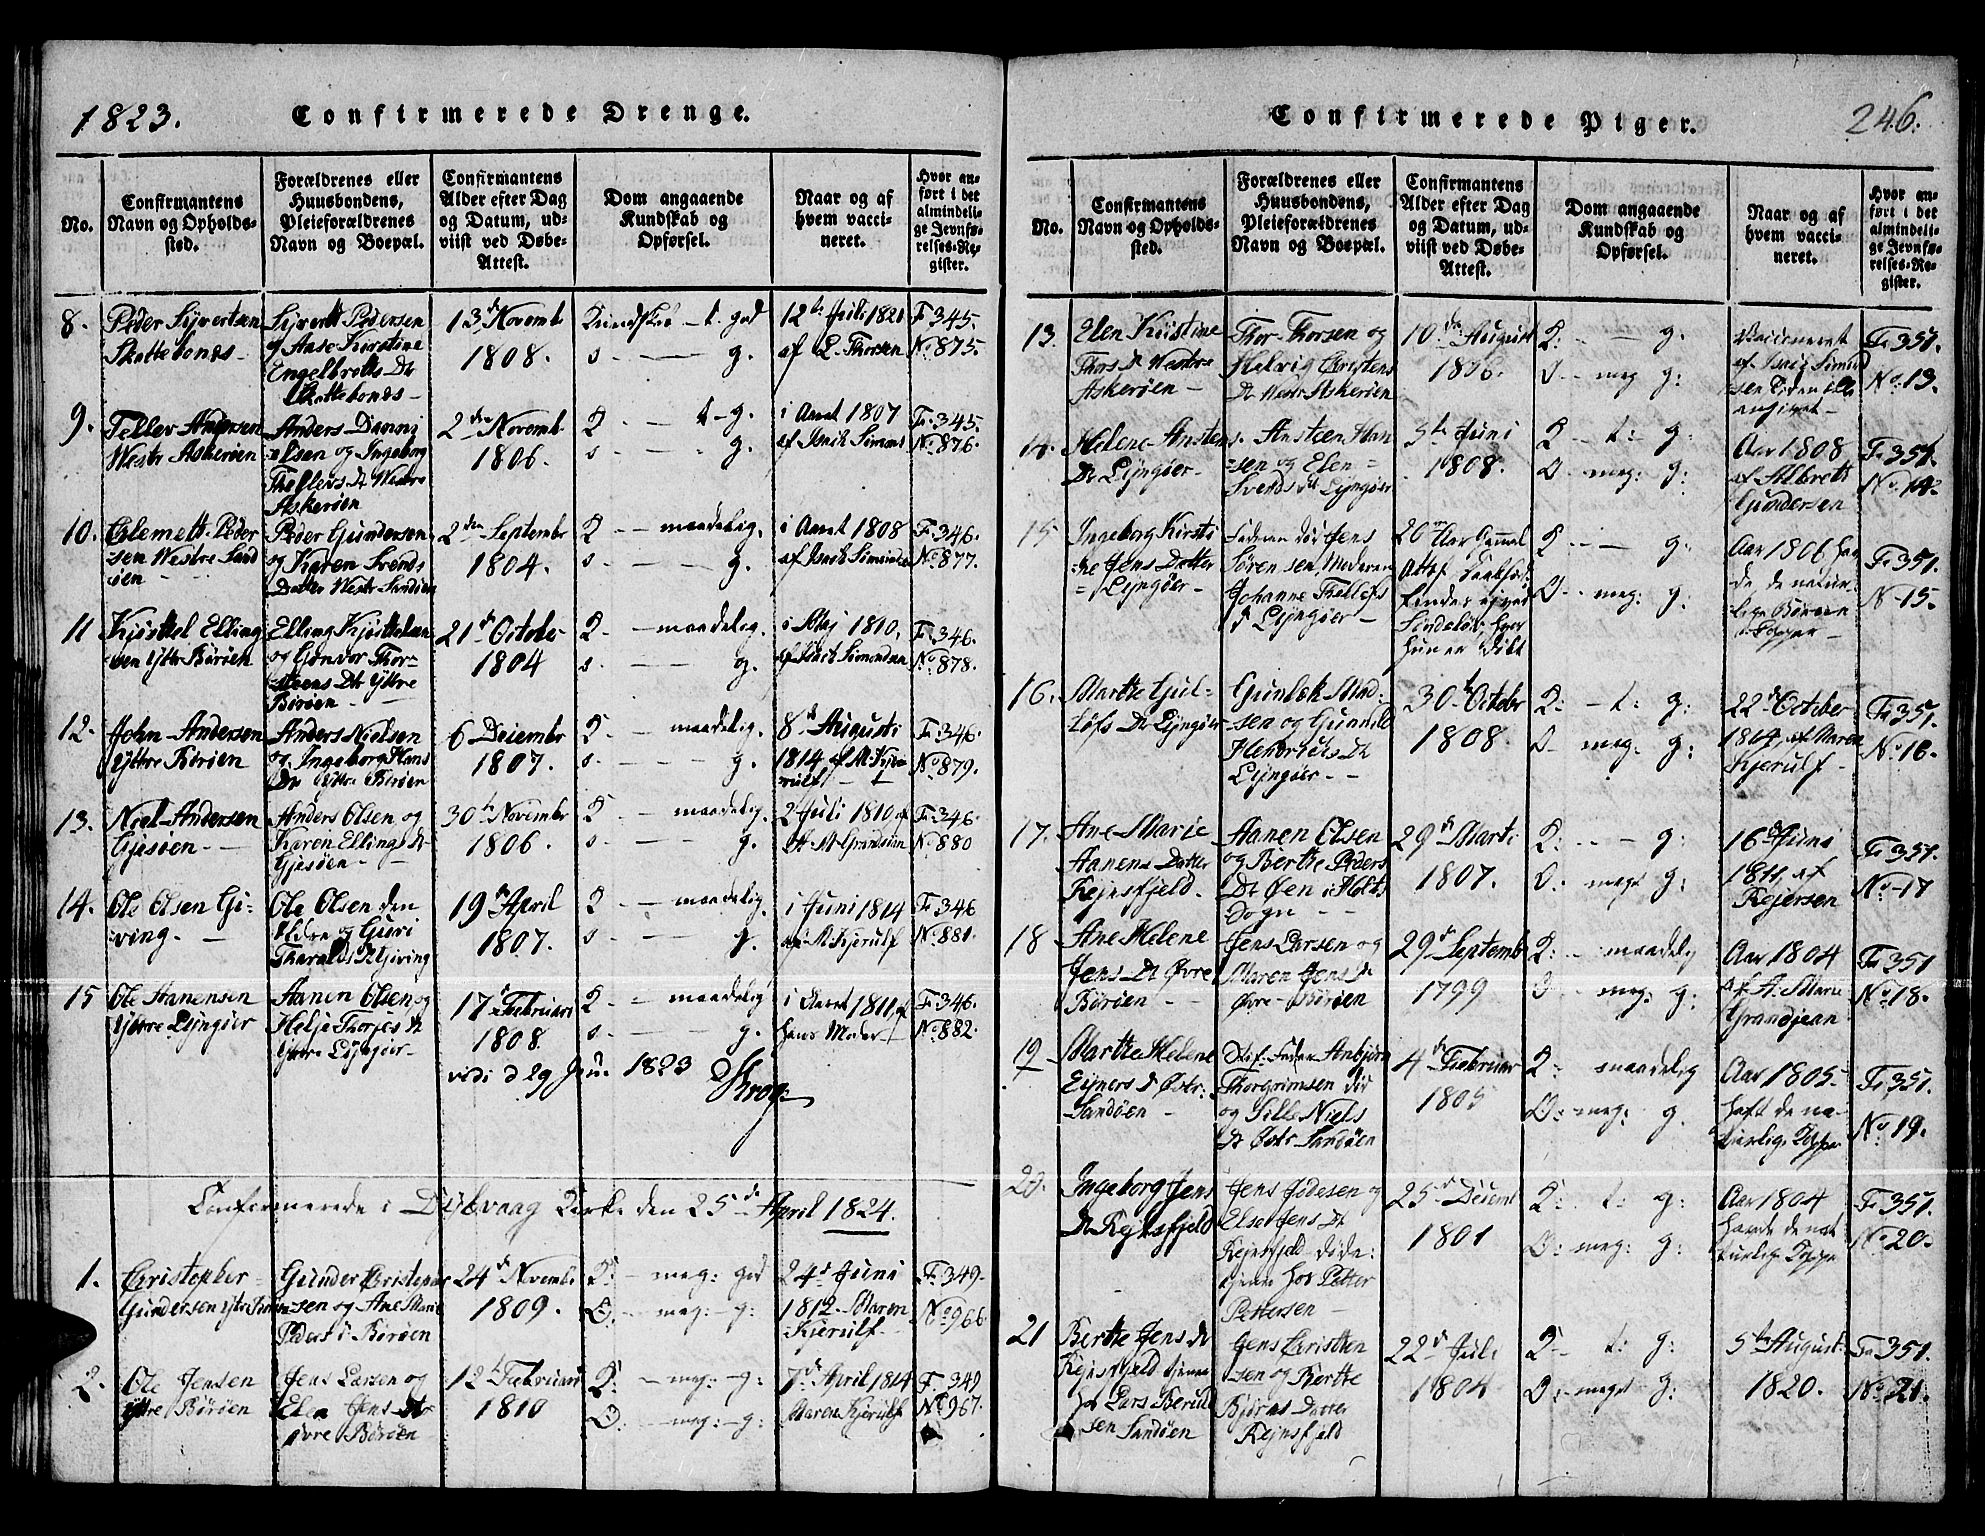 1823.
Confirmerede Drenge.
No.
Confirmantens
Navn og Opholds-
sted.
Forældrenes eller
Huusbondens,
Pleieforældrenes
Navn og Boepæl.
Confirmantens
Alder efter Dag
og Datum, ud-
viist ved Døbe-
Attest.
Dom angaaende
Kundskab og
Opførsel.
Naar og af
hvem vacci-
neret.
Hvor an-
ført i det
almindeli-
ge Jevnfø-
relses-Re-
gister.
8.
Peder Syvertsen
Skottebonds-
Syvert Pedersen
og Anse Kirstine
Engelbretts Dr
Skottebonds-
13 Novembr
1808.
Kundskb - t. god
s. - g.
12te Juli 1821
af L. Thorsen
F. 345.
No. 875.
9.
Tellev Andersen
Westr Askerøen
Anders Danni
elsen og Ingeborg
Thellevs Dr Westre
Askerøen
2den Novemb
1806.
K - t - g.
s. - g.
i Aaret 1807
af Isach Simons
F. 345.
No. 876.
10.
Clemett Peder
sen Westre Sand
øen
Peder Gundersen
og Karen Svends
Datter Westr Sandøen
2den Septembr
1804.
K - - maadelig.
s. - g.
i Aaret 1808
af Isach Simonds
F. 346.
No. 877.
11
Kjøstel Elling
sen Yttre Børøen
Elling Kjøstelsen
og Gunvor Thor-
steens Dr Yttre
Børøen
21 October
1804
K - - maadelig.
s. - g.
i Maj 1810,
af Isach Simondsen
F. 346.
No. 878.
12.
John Andersen
Yttre Børøen
Anders Nielsen
og Ingeborg Hans
Dr Yttre Børøen
6 December
1807.
K - maadelig.
s. - g.
8 Augusti
1814 af M. Kje-
rulf
F. 346.
No. 879.
13.
Niel Andersen
Gjesøen
Anders Olsen og
Karen Ellings Dr
Gjesøen
30 Novembr
1806.
K - maadelig.
s. - g.
2 Juli 1810 af
A. M. Grandsian
F. 346.
No. 880
14.
Ole Olsen Gi-
ving.
Ole Olsen den
Eldre og Guri
Tharalds Dr Giving
19 April
1807.
K - - maadelig
s. - g.
i Juni 1814
af M. Kjerulf
F. 346
No. 881.
15
Ole Aanensen
Yttre Lyngøer
Aanen Olsen og
Helje Thorjes Dr
Yttre Lyngøer
17 Februari
1808
K - = maadelig
s. - g.
i Aaret 1811, af
hans Moder
F. 346.
No. 882.
vidi d 29 Jun. 1823 Krog
Confirmerede i Dybvaag Kirke den 25de April 1824.
1.
Christopher
Gundersen Yttre Børøen
Gunder Christopher
sen og Ane Marie
Peders D Børøen
24 Novemb
1809.
K: - meg: god
O: - meg: - g:
24 Juni
1812 Maren
Kjerulf
F. 349.
No 966.
2.
Ole Jensen
Yttre Børøen
Jens Larsen og
Elen Jens Dr
øvre Børøen
12 Februar
1810
K: - meg: - g:
O: - meg: - g:
7 April 1814
Maren Kjerulf
F. 349
No. 967.
Confirmerede Piger.
246.
No.
Confirmantens
Navn og Opholds-
sted.
Forældrenes eller
Huusbondens,
Pleieforældrenes
Navn og Boepæl.
Confirmantens
Alder efter Dag
og Datum, ud-
viist ved Døbe-
Attest.
Dom angaaende
Kundskab og
Opførsel.
Naar og af
hvem vacci-
neret.
Hvor an-
ført i det
almindeli-
ge Jevnfø-
relses-Re-
gister.
13.
Elen Kirstine
Thors Dr Westre
Askerøen
Thor Thorsen og
Helvig Christens
Dr Westr Askerøen
10 August
1806.
K: - - g:
O - meg g:
Vaccineret
af Isach Simond
sen Tiden ikke
angivet
F. 351.
No. 13.
14.
Helene Anstens
Dr Lyngøer
Ansteen Han
sen og Elen
Svends Dr Lyngøer
5 Juni
1808.
K - t: g:
O - meg: g:
Aar 1808
af Albrett
Gundersen
F. 351.
No. 14.
15
Ingeborg Kirsti
ne Jens Datter
Lyngøer
Faderen død Jens
Sørensen, Moderen
Johanne Thellefs
D Lyngøer
20 Aar Gammel
hun er Døbt
K - - g:
O - meg: g:
Aar 1806 hav
de de natur
lige Børne
kopper
F. 351.
No 15.
16.
Marthe Gul-
løfs Dr Lyngøer
Gunlek Mad-
sen og Gunnild
Dr
Lyngøer
30 Octobr
1808.
K: - t: g:
O - meg: g:
22 October
1814 af Maren
Kjerulf
F. 351.
No. 16.
17.
Ane Marie
Aanens Datter
Rejnsfjeld.
Aanen Olsen
og Berthe Peders
Dr Øen i Holts
Sogn
29 Marti
1807.
K: - - g:
O: meget g:
16 Juni
1811 af
Rejersen
F. 351.
No. 17
18
Ane Helene
Jens Dr Øvre
Børøen
Jens Larsen og
Maren Jens Dr
Øvre Børøen
29 Septemb
1799
K: - maadelig
O - meg: g:
Aar 1804
af A. Marie
Grandjean
F. 351
No 18.
19
Marthe Helene
Ejners D Østr.
Sandøen
Stif: Fader Anbjørn
Thorgrimsen død
og Sille Niels
Dr Østr Sandøen
4 Februar
1805
K: maadelig
O: meg: g.
Aar 1805
haft de na-
turlig: Kopper
F. 351.
No. 19.
20.
Ingeborg Jens
Dr Rejnsfjeld
Jens Jodesen og
Else Jens Dr
Rejnsfjeld døde:
tjener hos Petter
Pettersen
25 Decemb
1801
K: t: g:
O: meg: g:
Aar 1804
havde de nat
turlige Kopper
F. 351.
No. 20.
21
Berthe Jens Dr
Rejnsfjeld tjener
hos Lars Berul
sen Sandøen
Jens Christen
sen og Berthe
Bjørns Datter
Rejnsfjeld
22 Juli
1804
K - t: g:
O: - meget g:
5 August
1820.
F. 351.
No. 21.